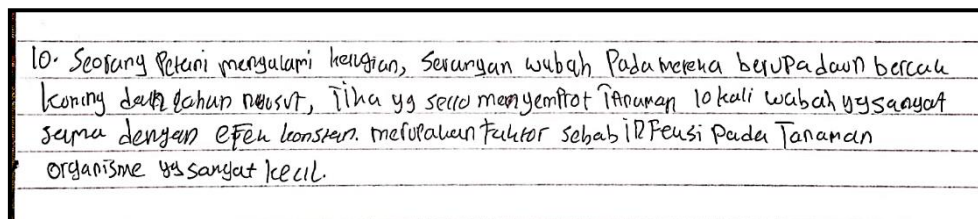 10. Seorang Petani mengalami kerugian, Serangan wabah Pada mereka berupa daun bercak
kuning dan lahan nyusut, Tiba yg menyemprot Tanaman 10 kali wabah yg sangat
sama dengan efek konstan. merupakan Faktor sebab inFeksi Pada Tanaman
organisme yg sangat kecil.